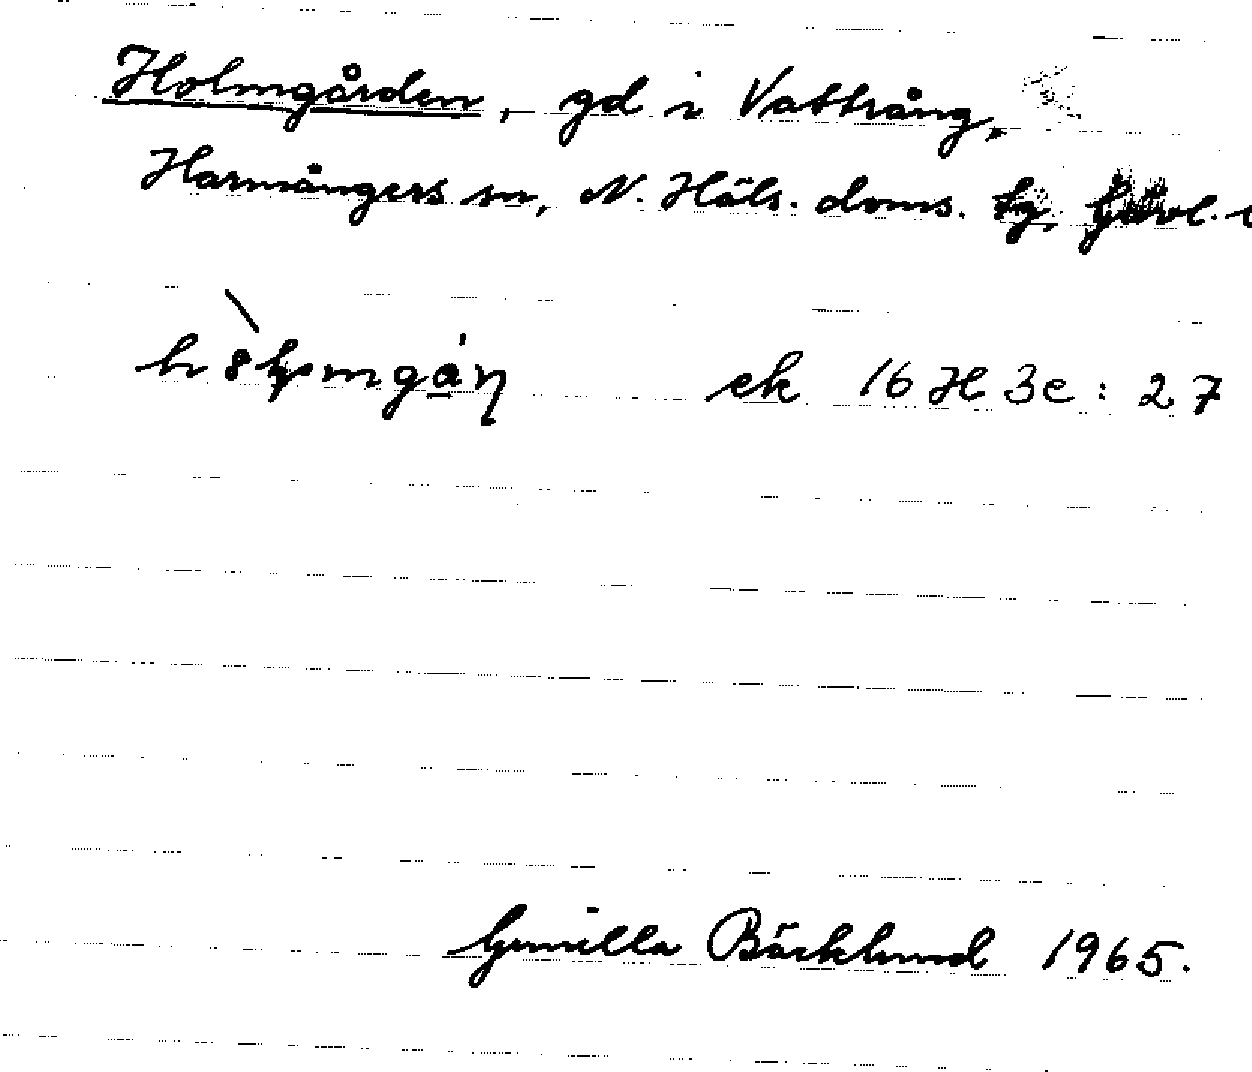 Holmgården, gd i Vattrång,
Harmångers sn, N. Häls. doms. tg, Gävl.
ek 16 H 3e : 27
Gunilla Bäcklund 1965.